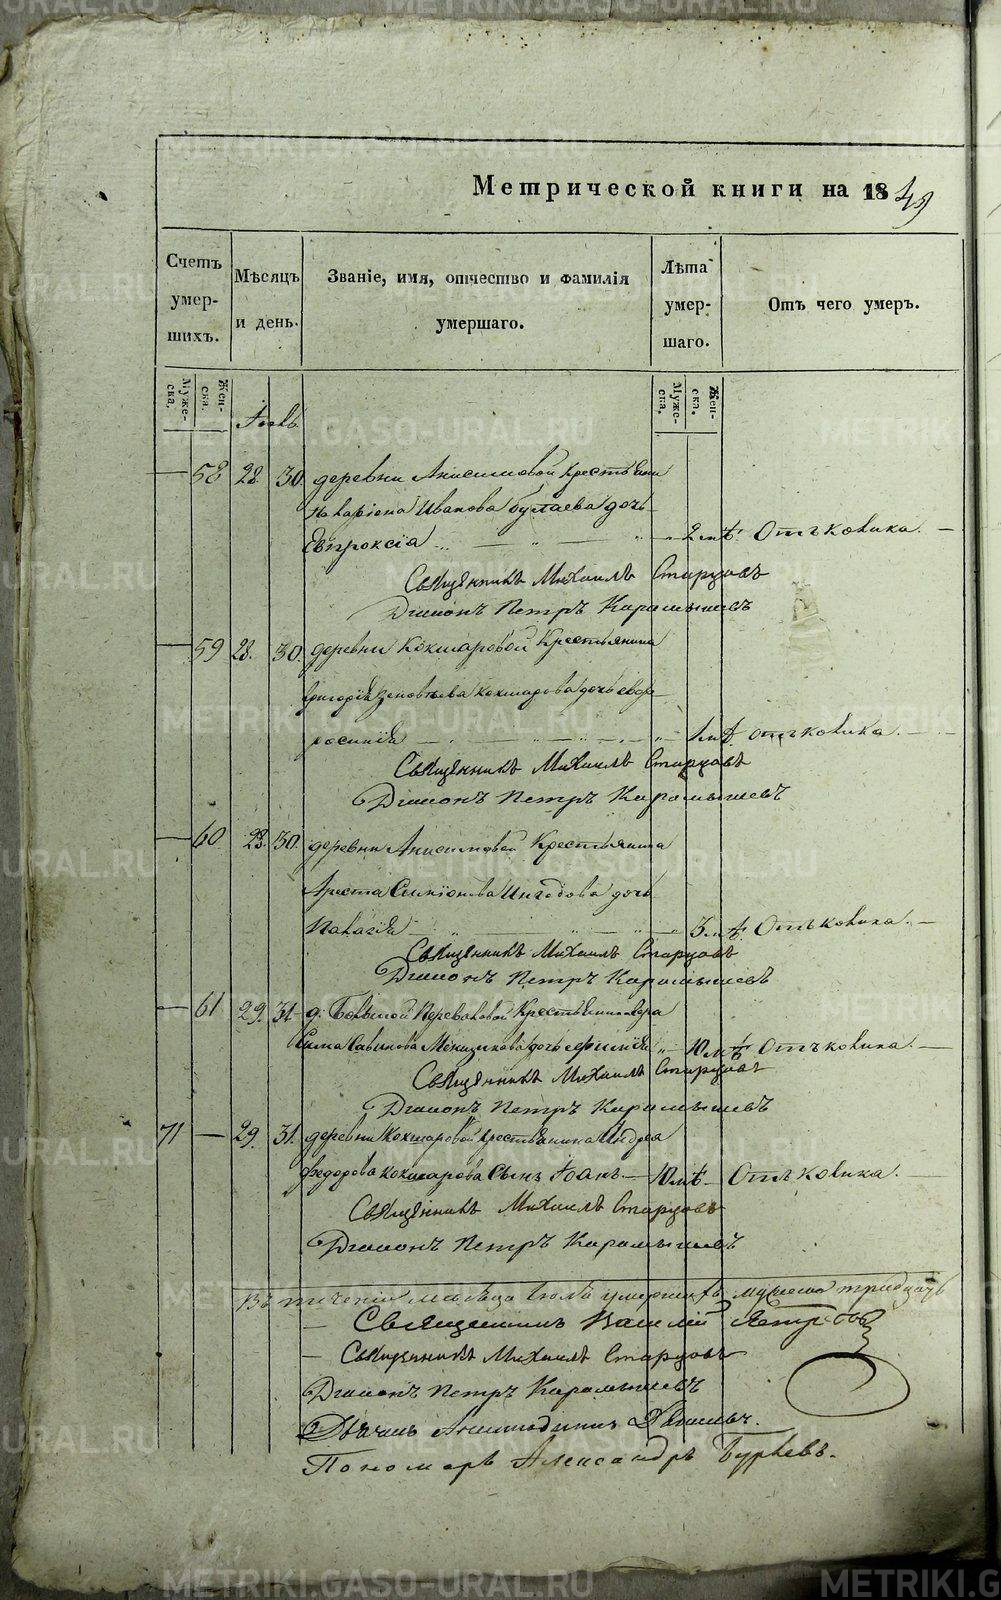 Метрической книги на 1849
Счетъ умер- шихъ.
Мѣсяцъ и день.
Званіе, имя, отчество и фамилія умершаго.
Лѣта умер- шаго.
Отъ чего умеръ.
Муже- ска.
Жен- ска.
Муже- ска.
Жен- ска.
Іюль
— 58 28 30 деревни Анисимовой крестьянина
Илларіона Иванова Булаева дочь
Евпроксія 2 лѣ. Отъ коклюша
Священникъ Михаилъ Старцовъ
Діаконъ Петръ Карамышевъ
— 59 28. 30. деревни Кокшаровой крестьянина
Григорія Зиновьева Кокшарова дочь Евф-
росинія 1 лѣ. отъ коклюша.
Священникъ Михаилъ Старцовъ
Діаконъ Петръ Карамышевъ
— 60 28. 30. деревни Анисимовой крестьянина
Ореста Симіонова дочь
Пелагія 3 лѣ. Отъ коклюша.
Священникъ Михаилъ Старцовъ
Діаконъ Петръ Карамышевъ
— 61 29. 31. д. Большой Переваловой крестьянина
Савинова дочь 10 лѣ. Отъ коклюша.
Священникъ Михаилъ Старцовъ
Діаконъ Петръ Карамышевъ
71 — 29. 31. деревни Кокшаровой крестьянина Андрея
Федорова Кокшарова сынъ Іоанъ 10 лѣ. Отъ коклюша.
Священникъ Михаилъ Старцовъ
Діаконъ Петръ Карамышевъ
Въ теченіи мѣсяца Іюля умершихъ мужеска тридцать
Священникъ Василій
Священникъ Михаилъ Старцовъ
Діаконъ Петръ Карамышевъ
Дьячекъ
Пономарь Александръ
METRIKI.GASO-URAL.RU